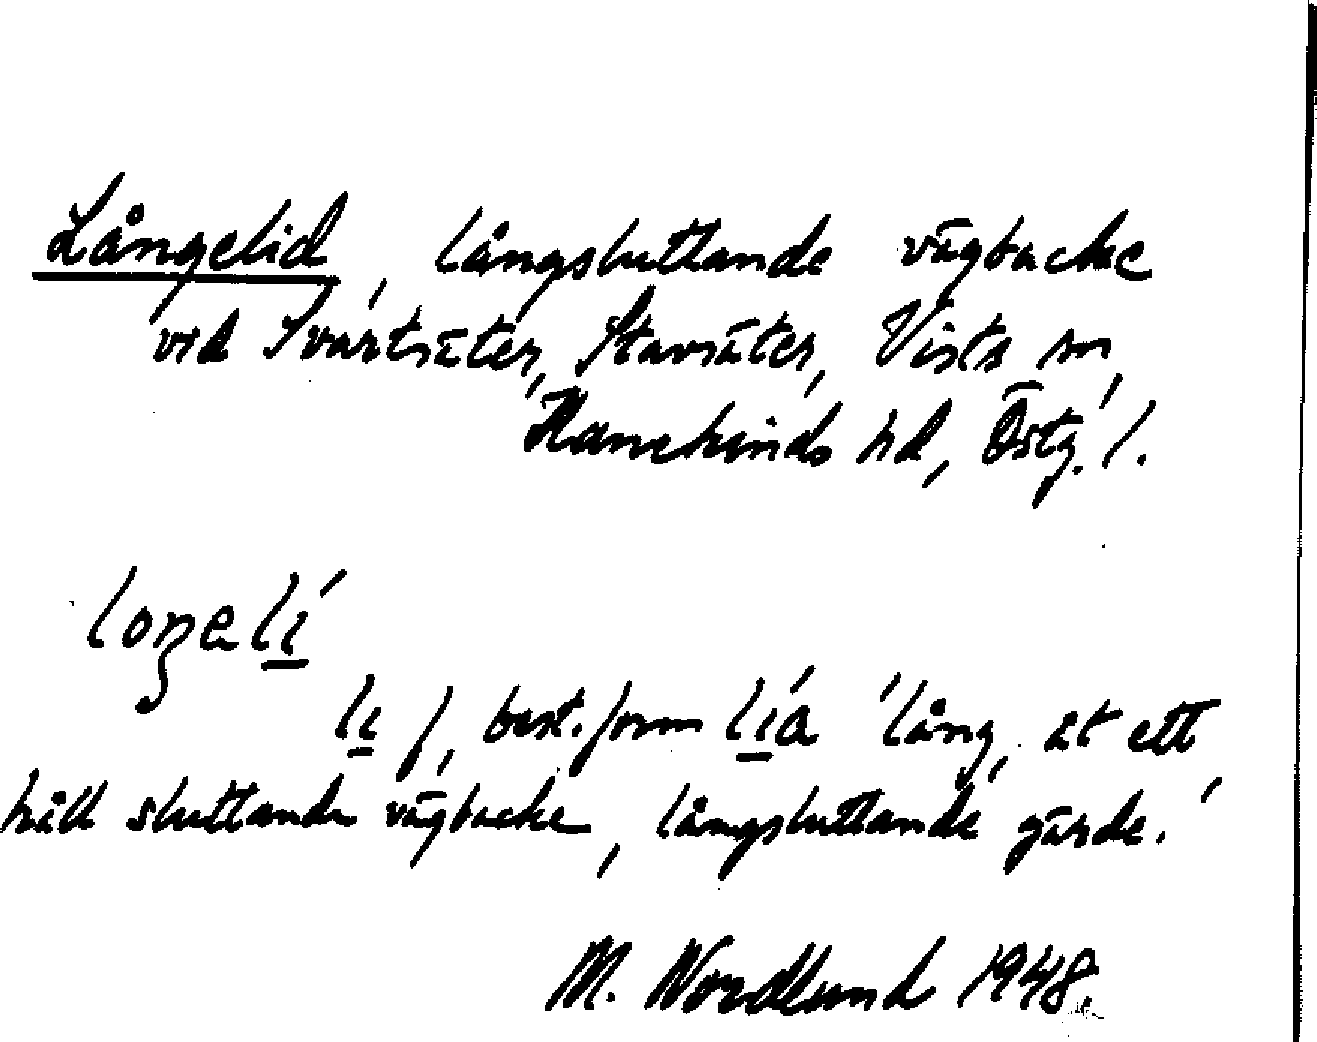 Långelid, långsluttande vägbacke
vid Svartsäter, Stavsäter, Vists sn,
Hanekinds hd, Östg. l.
loŋeli´
li f, best. form li´a 'lång, åt ett
håll sluttande vägbacke, långsluttande gärde.'
M. Nordlund 1948.